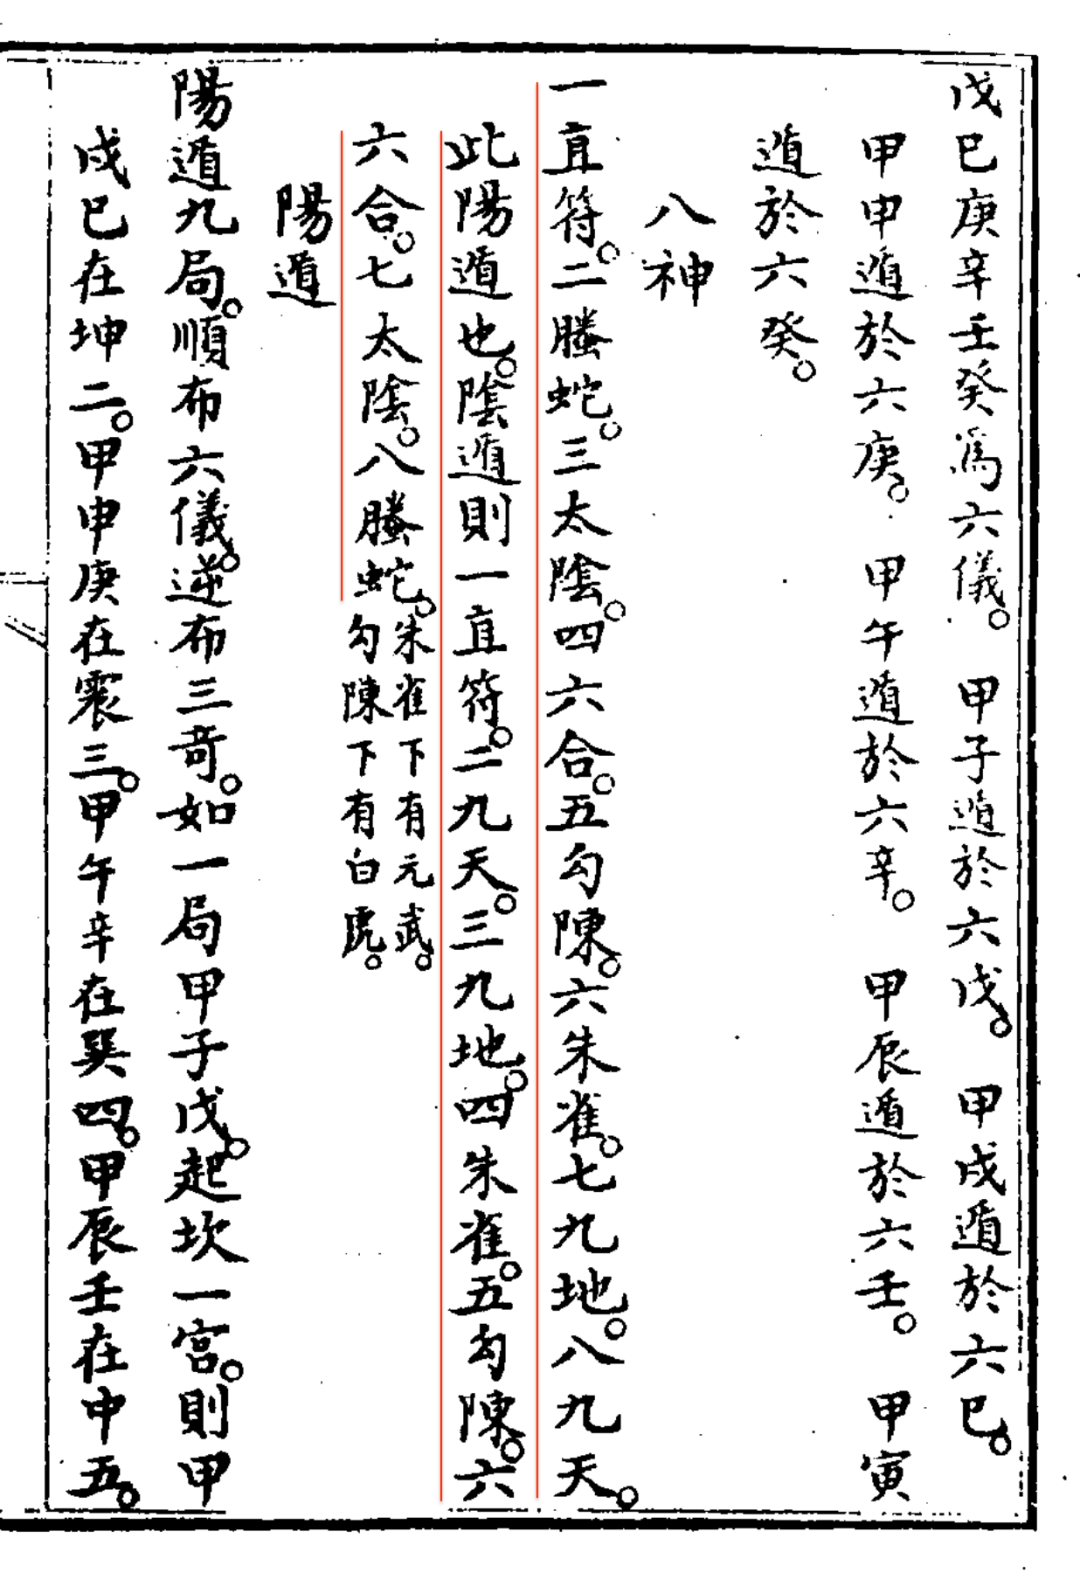 戊巳庚辛壬癸爲六儀。甲子遁於六戊。甲戌遁於六巳。
甲申遁於六庚。甲午遁於六辛。甲辰遁於六壬。甲寅
遁於六癸。
八神
一直符。二螣蛇。三太陰。四六合。五勾陳。六朱雀。七九地。八九天。
此陽遁也。陰遁則一直符。二九天。三九地。四朱雀。五勾陳。六
六合。七太陰。八螣蛇。朱雀下有元武。
勾陳下有白虎。
陽遁
陽遁九局。順布六儀。逆布三奇。如一局甲子戊。起坎一宮。則甲
戌巳在坤二。甲申庚在震三。甲午辛在巽四。甲辰壬在中五。